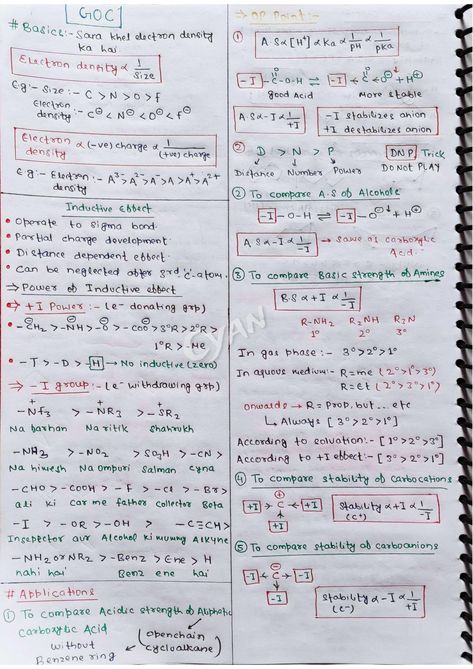 GOC
# Basics:- Sara khel electron density
ka hai
Electron density ∝ 1/Size
E.g:- Size:- C > N > O > f
Electron density:- C⊖ < N⊖ < O⊖ < f⊖
Electron density ∝ (-ve) charge ∝ 1/(+ve) charge
E.g:- Electron density:- A³⁻ > A²⁻ > A⁻ > A > A⁺ > A²⁺
Inductive Effect
• Operate to sigma bond.
• Partial charge development.
• Distance dependent effect.
• Can be neglected after 3rd C-atom.
⇒ Power of Inductive effect
⇒ +I Power:- (e⁻ donating grp)
• -CH₂⊖ > -NH⊖ > -O⊖ > -COO⊖ > 3°R > 2°R >
1°R > -Me
• -T > -D > -H → No inductive (zero)
⇒ -I group:- (e⁻ withdrawing grp)
-NF₃⁺ > -NR₃⁺ > -SR₂⁺
Na parhan Na ritik Shahrukh
-NH₃⁺ > -NO₂ > SO₂H > -CN >
Na himesh Na ompuri Salman Cyna
-CHO > -COOH > -F > -Cl > -Br >
ali ki car me father collector Beta
-I > -OR > -OH > -C≡CH >
Insepector aur Alcohol ki mummy Alkyne
-NH₂ or NR₂ > -Benz > Ene > H
nahi hai Benz ene hai
# Applications
① To compare Acidic strength of Aliphatic
carboxylic Acid
without Benzene ring
(openchain
cycloalkane)
⇒ OP Point:-
① A.S ∝ [H⁺] ∝ Ka ∝ 1/pH ∝ 1/pKa
-I ← C(=O)-O-H ⇌ -I ← C(=O)-O⊖ + H⊕
good Acid More stable
A.S ∝ -I ∝ 1/+I
-I stabilizes anion
+I destabilizes anion
② D > N > P DNP Trick
Distance Number Power DO NOT PLAY
② To compare A.S of Alcohols
-I -O-H ⇌ -I -O⊖ + H⊕
A.S ∝ -I ∝ 1/+I → same as carboxylic
Acid.
③ To compare Basic strength of Amines
B.S ∝ +I ∝ 1/-I
R-NH₂ R₂NH R₃N
1° 2° 3°
In gas phase:- 3° > 2° > 1°
In aqueous medium:- R=me (2° > 1° > 3°)
R=Et (2° > 3° > 1°)
onwards → R = Prop, but... etc
↳ Always [3° > 2° > 1°]
According to solvation:- [1° > 2° > 3°]
According to +I effect:- [3° > 2° > 1°]
④ To compare stability of carbocations
+I > C⊕ < +I
+I
Stability (C⁺) ∝ +I ∝ 1/-I
⑤ To compare stability of carboanions
-I < C⊖ > -I
-I
Stability (C⁻) ∝ -I ∝ 1/+I
CYAN